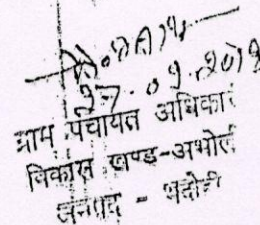 27.09.2018
ग्राम पंचायत अधिकार
विकास खण्ड-अभोल
जनपद - भदोही